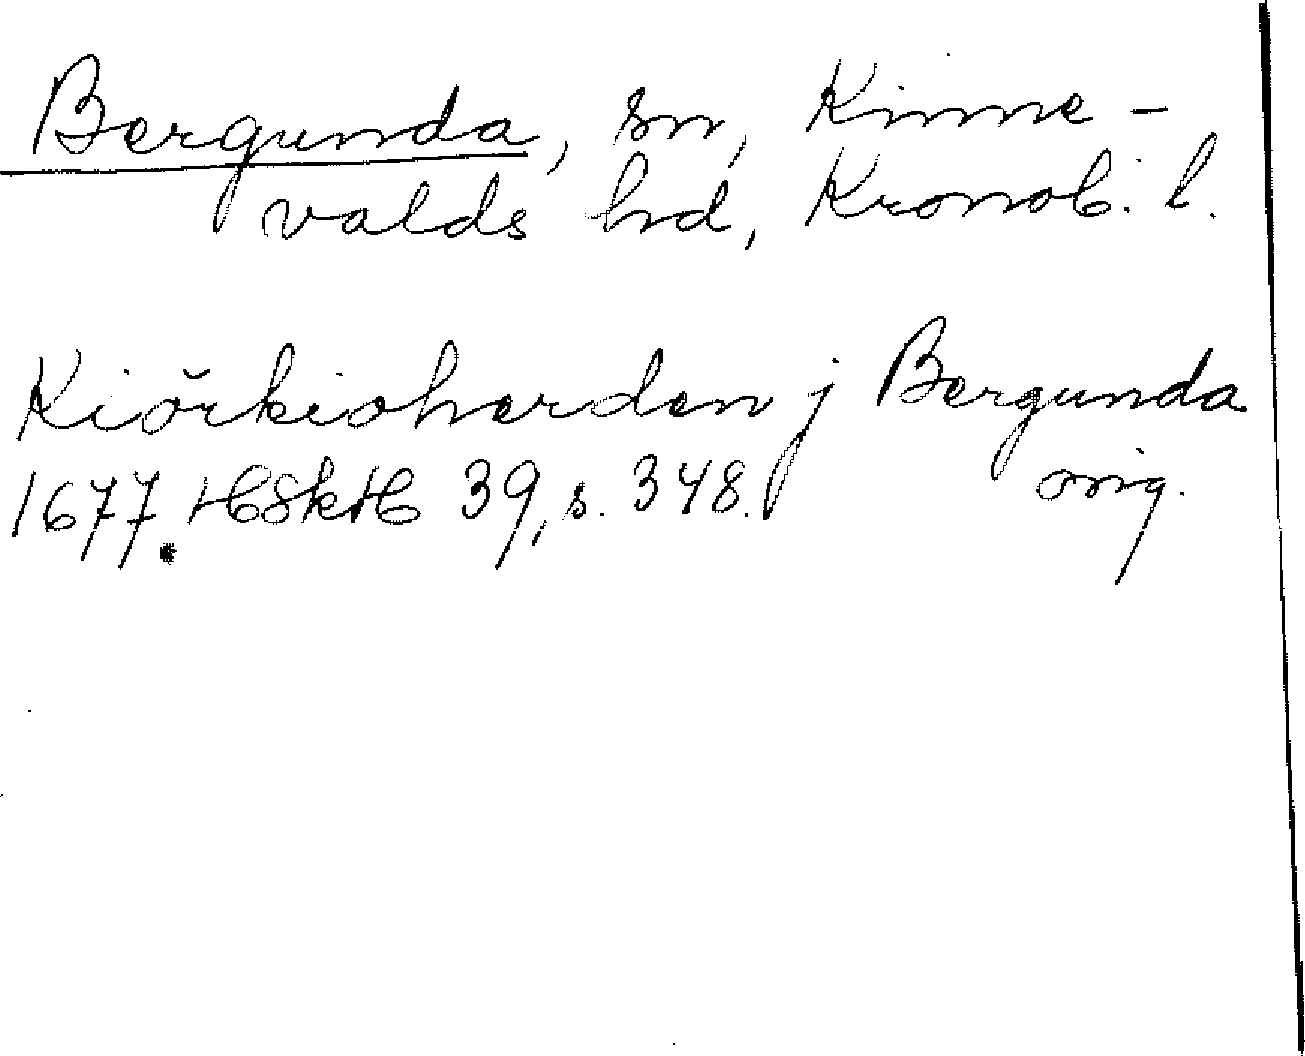 Bergunda, sn, Kinne-
valds hd, Kronob. l.
Kiörkioherden j Bergunda
1677. HSkH 39, s. 348. orig.